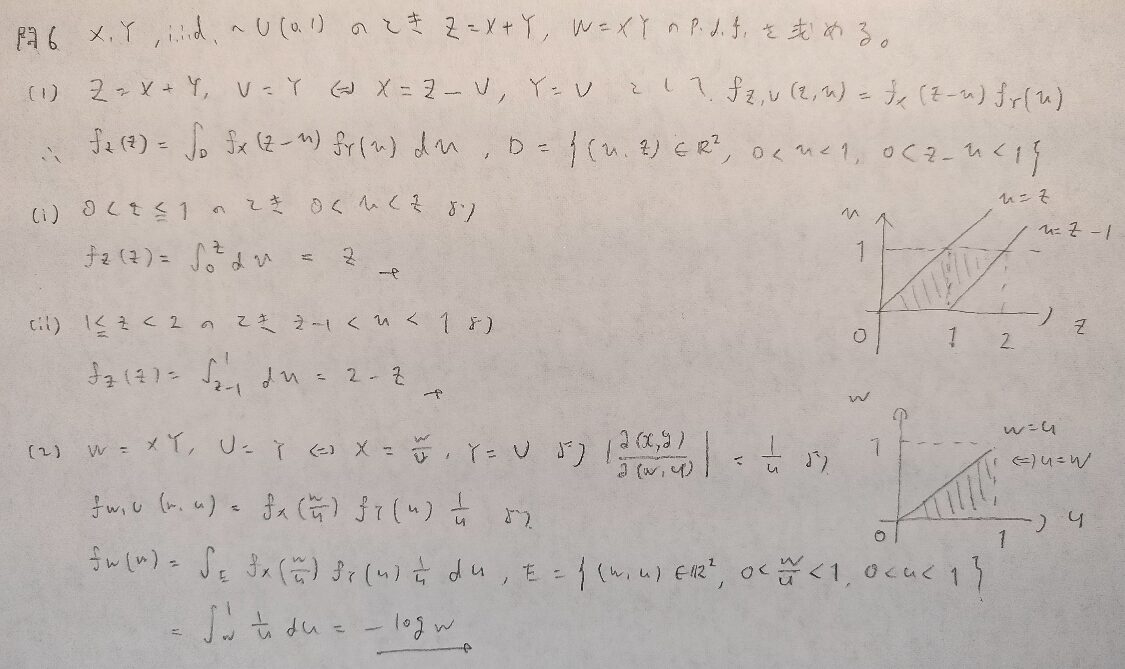 問6 X, Y, i.i.d. ~ U(0,1) のとき Z=X+Y, W=XY の p.d.f. を求める。
(1) Z=X+Y, U=Y ⇔ X=Z-U, Y=U として. f_{Z,U}(z,u) = f_X(z-u) f_Y(u)
∴ f_Z(z) = ∫_D f_X(z-u) f_Y(u) du, D = {(u,z) ∈ R², 0<u<1, 0<z-u<1}
(i) 0<z≦1 のとき 0<u<z より
f_Z(z) = ∫_0^z du = z
(ii) 1≦z<2 のとき z-1<u<1 より
f_Z(z) = ∫_{z-1}^1 du = 2-z
u
u=z
u=z-1
1
0
1
2
z
(2) W=XY, U=Y ⇔ X = W/U, Y=U より |∂(x,y)/∂(w,u)| = 1/u より
f_{W,U}(w,u) = f_X(w/u) f_Y(u) 1/u より
f_W(w) = ∫_E f_X(w/u) f_Y(u) 1/u du, E = {(w,u) ∈ R², 0<w/u<1, 0<u<1}
= ∫_w^1 1/u du = -log w
w
1
w=u
⇔u=w
0
1
u